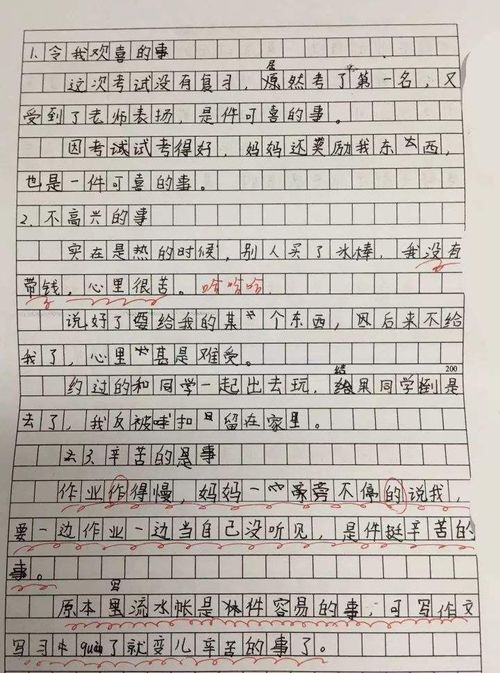 1.令我欢喜的事
这次考试没有复习，居然考了第一名，又
受到了老师表扬，是件可喜的事。
因考试试考得好，妈妈还奖励我东西，
也是一件可喜的事。
2.不高兴的事
实在是热的时候，别人买了冰棒，我没有
带钱，心里很苦。哈哈哈
说好了要给我的某个东西，因后来不给
我了，心里甚是难受。
200
约过的和同学一起出去玩，结果同学倒是
去了，我反被扣留在家里。
辛苦的事
作业作得慢，妈妈一旁不停的说我，
要一边作业一边当自己没听见，是件挺辛苦的
事。
原本写流水帐是件容易的事，可写作文
写习中quan了就变儿辛苦的事了。